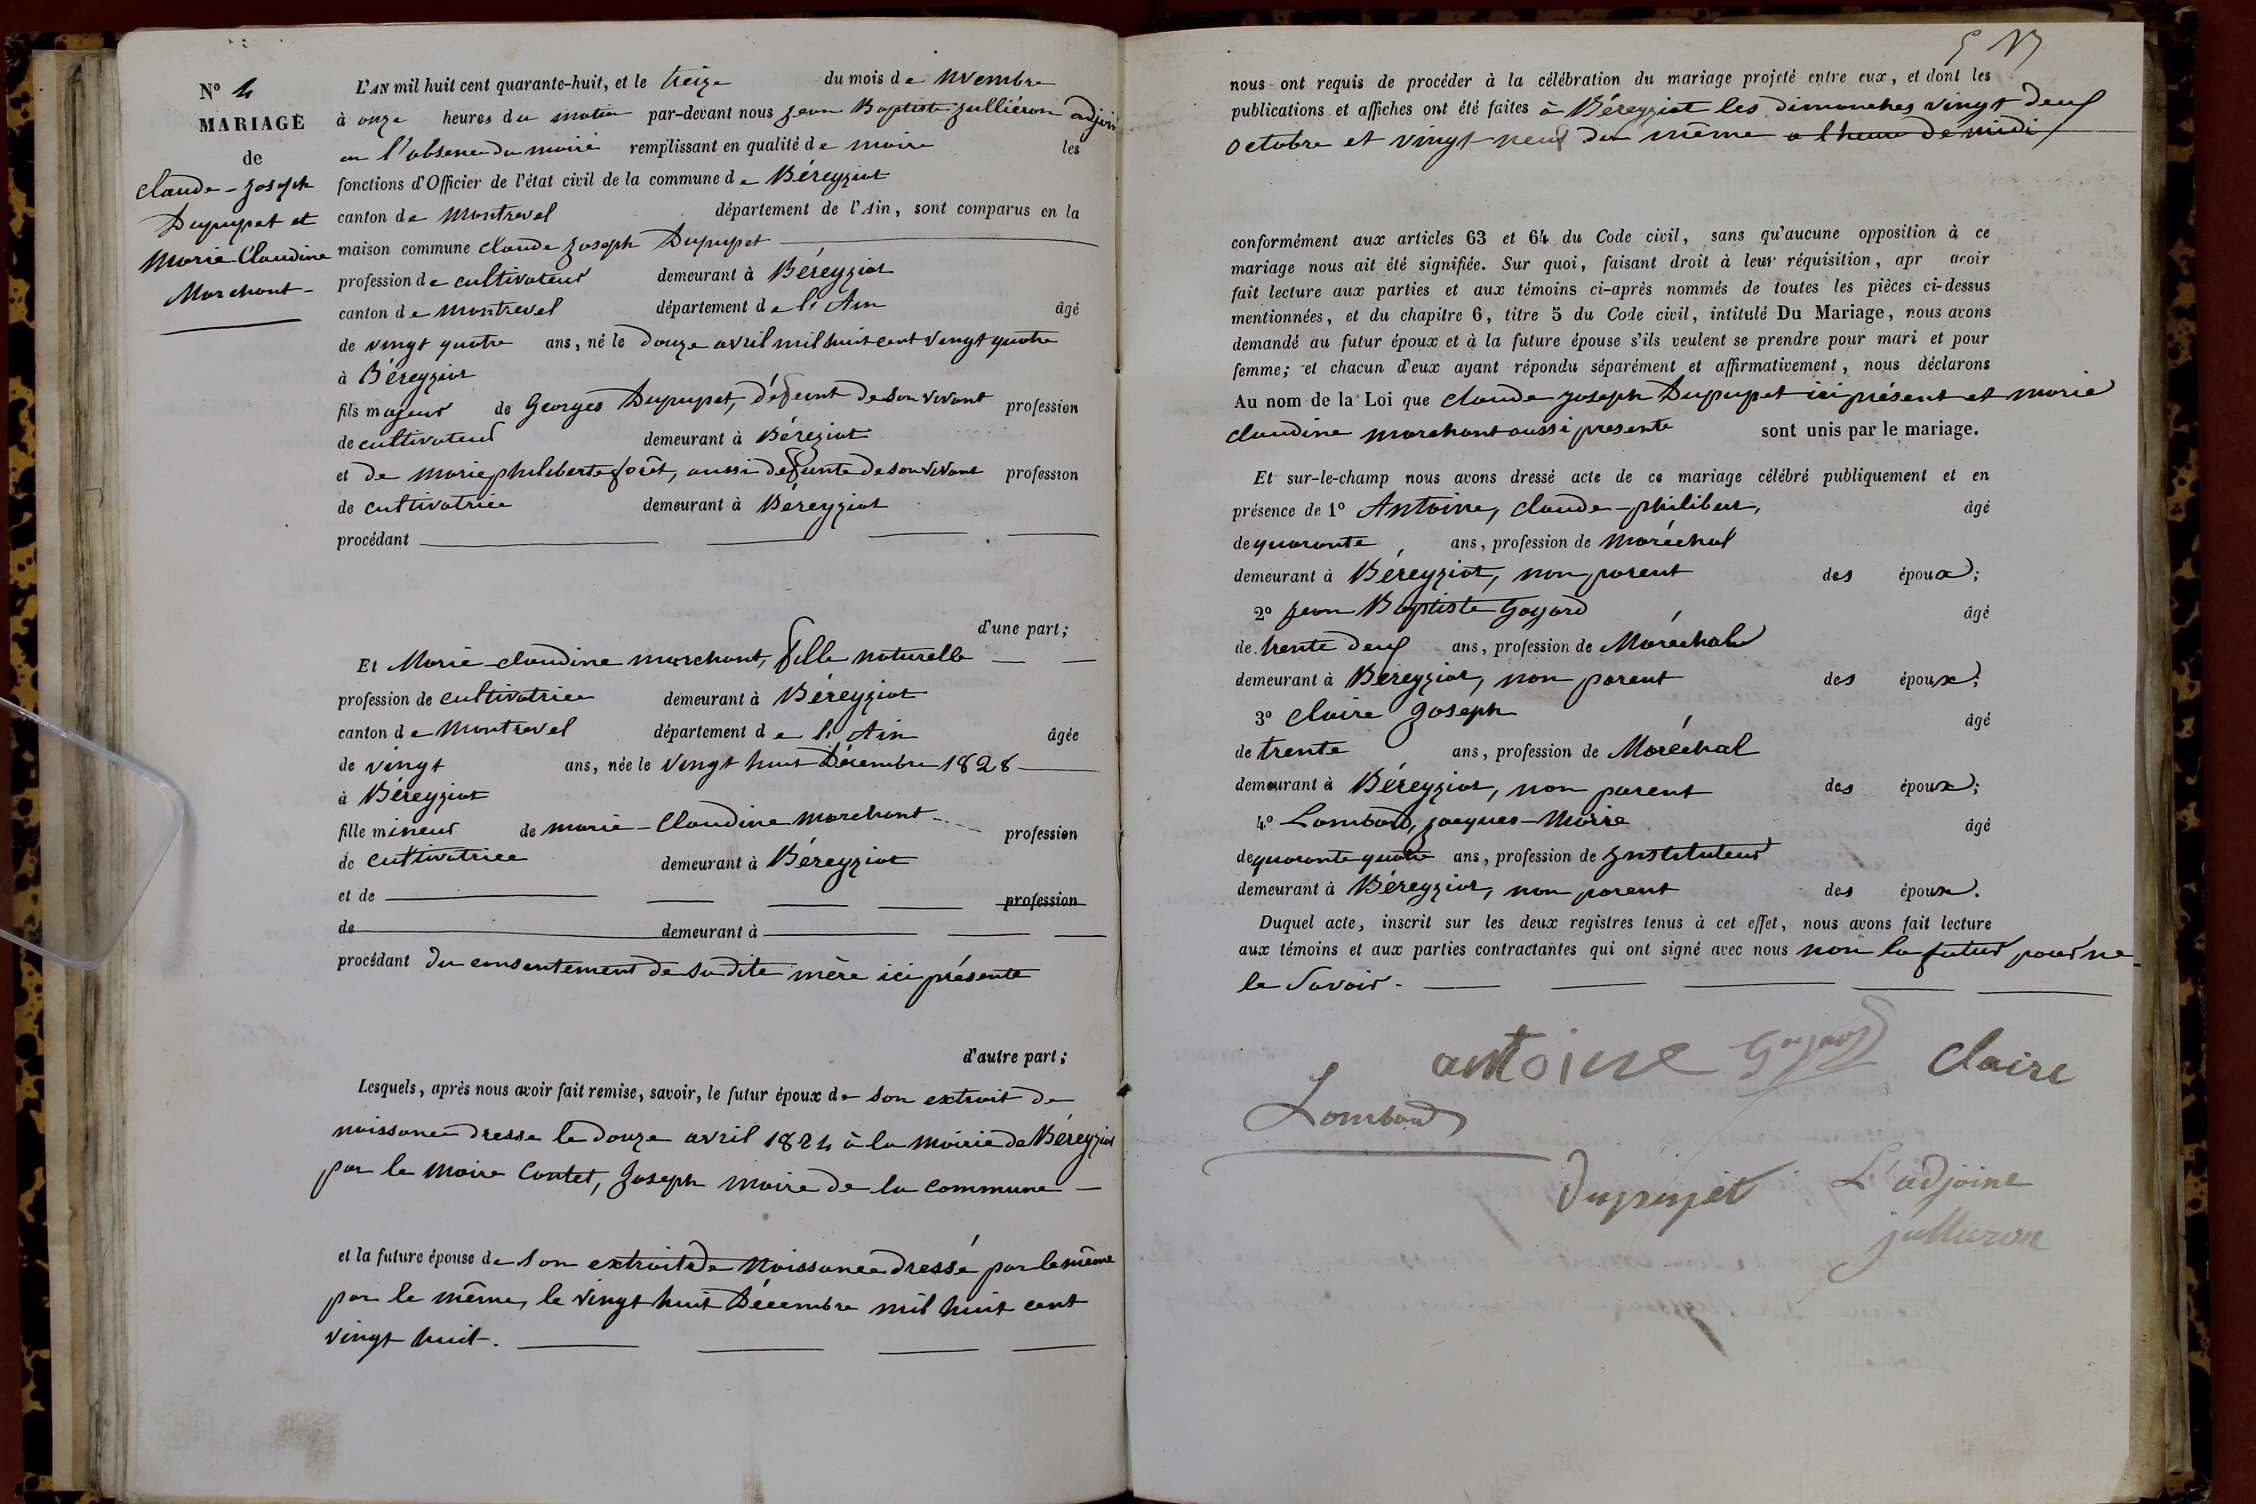 N° 4
MARIAGE
de
Claude-Joseph
Dupupet et
Marie Claudine
Marchant
L'AN mil huit cent quarante-huit, et le treize du mois de novembre
à onze heures du matin par-devant nous Jean Baptiste Julliéron adjoin
en l'absence du maire remplissant en qualité de maire les
fonctions d'Officier de l'état civil de la commune de Béreyziat
canton de Montrevel département de l'Ain, sont comparus en la
maison commune Claude Joseph Dupupet
profession de cultivateur demeurant à Béreyziat
canton de Montrevel département de l'Ain âgé
de vingt quatre ans, né le douze avril mil huit cent vingt quatre
à Béreyziat
fils majeur de Georges Dupupet, défunt de son vivant profession
de cultivateur demeurant à Béreziat
et de Marie philiberte forêt, aussi defunte de son vivant profession
de cultivatrice demeurant à Béreyziat
procédant
d'une part;
Et Marie-claudine marchant, fille naturelle
profession de cultivatrice demeurant à Béreyziat
canton de Montrevel département de l'Ain âgée
de vingt ans, née le vingt huit Décembre 1828
à Béreyziat
fille mineur de marie-Claudine marchant profession
de cultivatrice demeurant à Béreyziat
et de profession
de demeurant à
procédant du consentement de sa dite mère ici présente
d'autre part;
Lesquels, après nous avoir fait remise, savoir, le futur époux de son extrait de
naissance dresse le douze avril 1824 à la mairie de Béreyziat
par le maire Contet, Joseph maire de la commune
et la future épouse de son extrait de naissance dressé par le même
par le même, le vingt huit Décembre mil huit cent
vingt huit.
nous ont requis de procéder à la célébration du mariage projeté entre eux, et dont les
publications et affiches ont été faites à Béreyziat les dimanches vingt deux
octobre et vingt neuf du même a l'heure de midi
conformément aux articles 63 et 64 du Code civil, sans qu'aucune opposition à ce
mariage nous ait été signifiée. Sur quoi, faisant droit à leur réquisition, apr avoir
fait lecture aux parties et aux témoins ci-après nommés de toutes les pièces ci-dessus
mentionnées, et du chapitre 6, titre 5 du Code civil, intitulé Du Mariage, nous avons
demandé au futur époux et à la future épouse s'ils veulent se prendre pour mari et pour
femme; et chacun d'eux ayant répondu séparément et affirmativement, nous déclarons
Au nom de la Loi que Claude Joseph Dupupet ici présent et marie
claudine marchant aussi presente sont unis par le mariage.
Et sur-le-champ nous avons dressé acte de ce mariage célébré publiquement et en
présence de 1° Antoine, claude-philibert, âgé
de quarante ans, profession de Maréchal
demeurant à Béreyziat, non parent des époux;
2° Jean Baptiste Goyard âgé
de trente deux ans, profession de Maréchal
demeurant à Béreyziat, non parent des époux;
3° Claire Joseph âgé
de trente ans, profession de Maréchal
demeurant à Béreyziat, non parent des époux;
4° Lombard, Jacques-Marie âgé
de quarante quatre ans, profession de Instituteur
demeurant à Béreyziat, non parent des époux.
Duquel acte, inscrit sur les deux registres tenus à cet effet, nous avons fait lecture
aux témoins et aux parties contractantes qui ont signé avec nous non la futur pour ne
le savoir.
antoine Goyard Claire
Lombard
Dupupet L'adjoint
jullieron